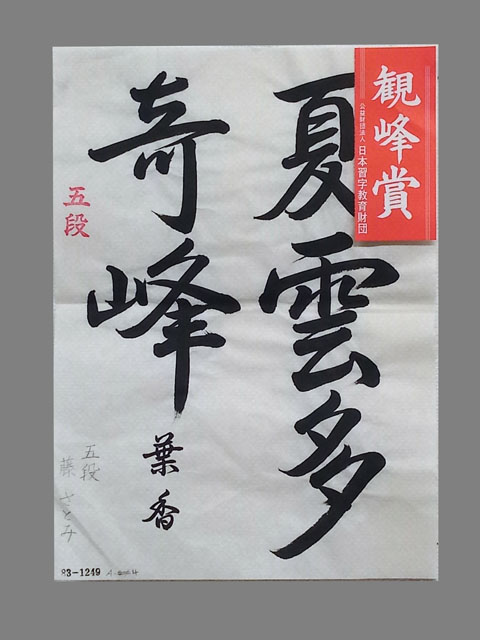 観峰賞
公益財団法人 日本習字教育財団
夏雲多
奇峰
葉香
五段
五段
藤 さとみ
83-1249